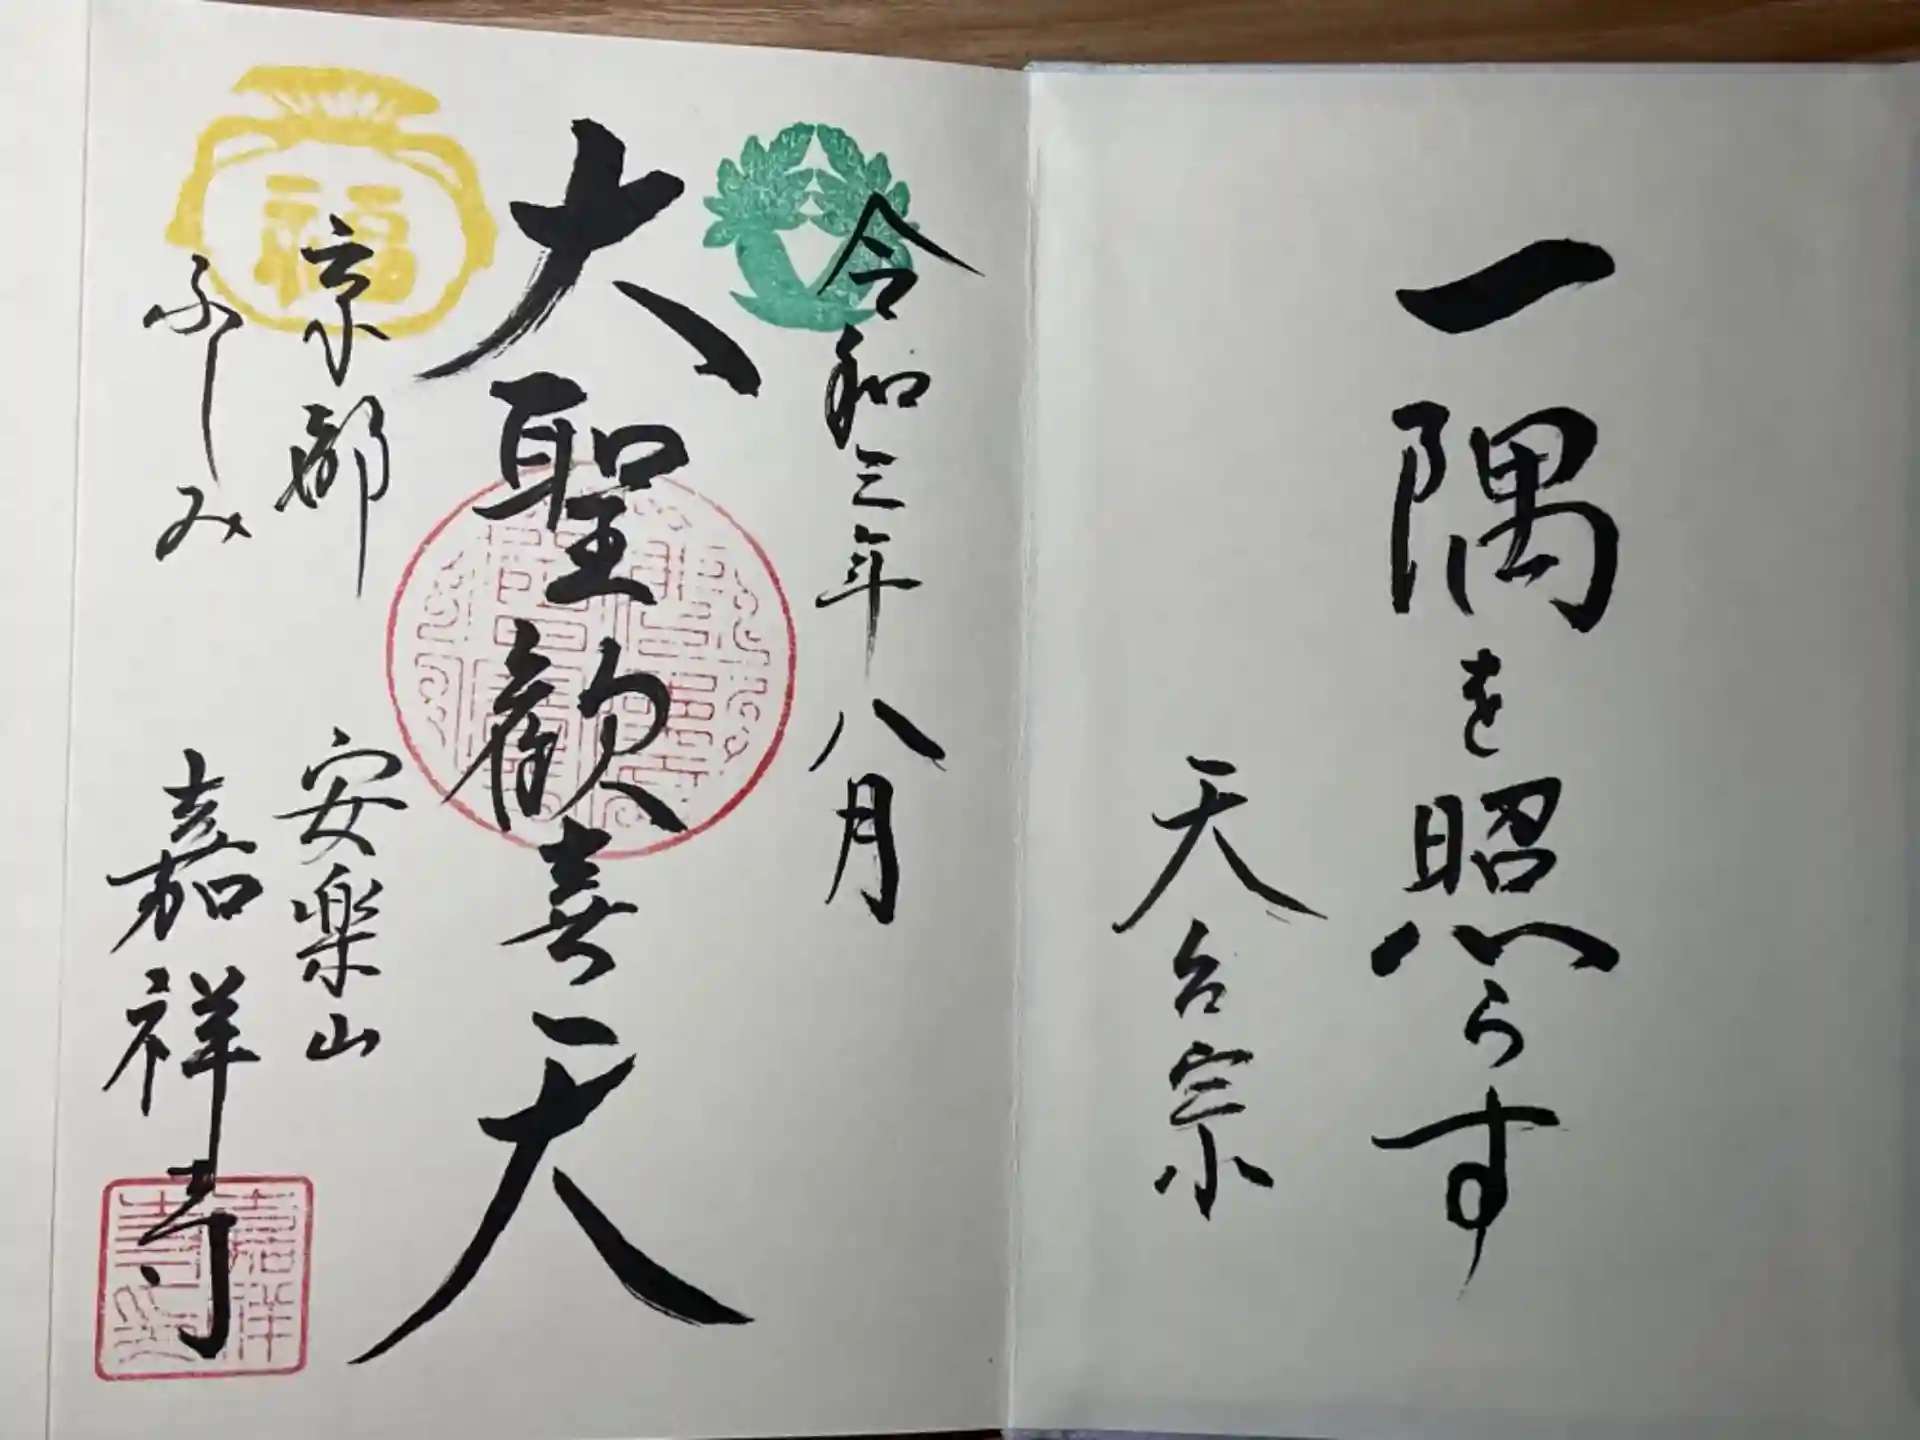 一隅を照らす
天台宗
令和三年八月
大聖歓喜天
京都
ふしみ
安楽山
嘉祥寺
福
嘉祥寺印